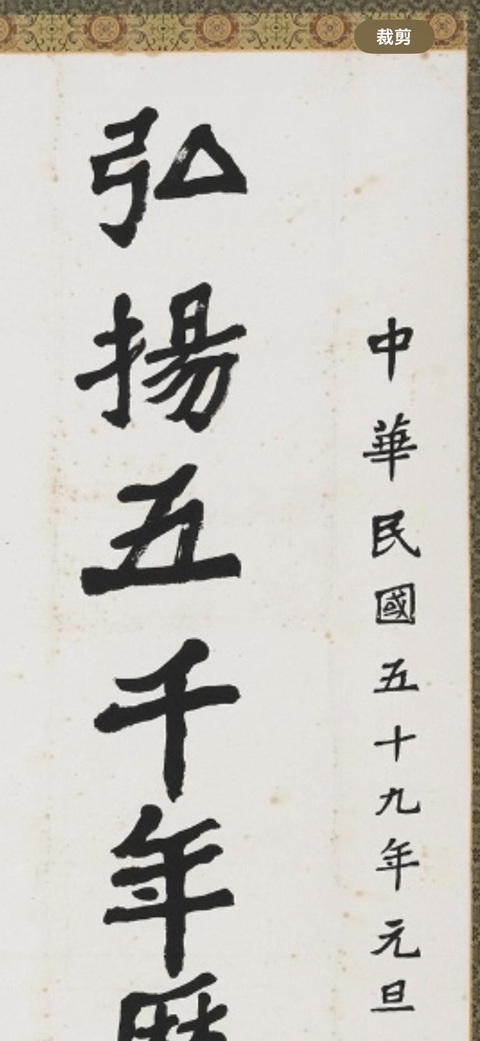 裁剪
中華民國五十九年元旦
弘揚五千年歷